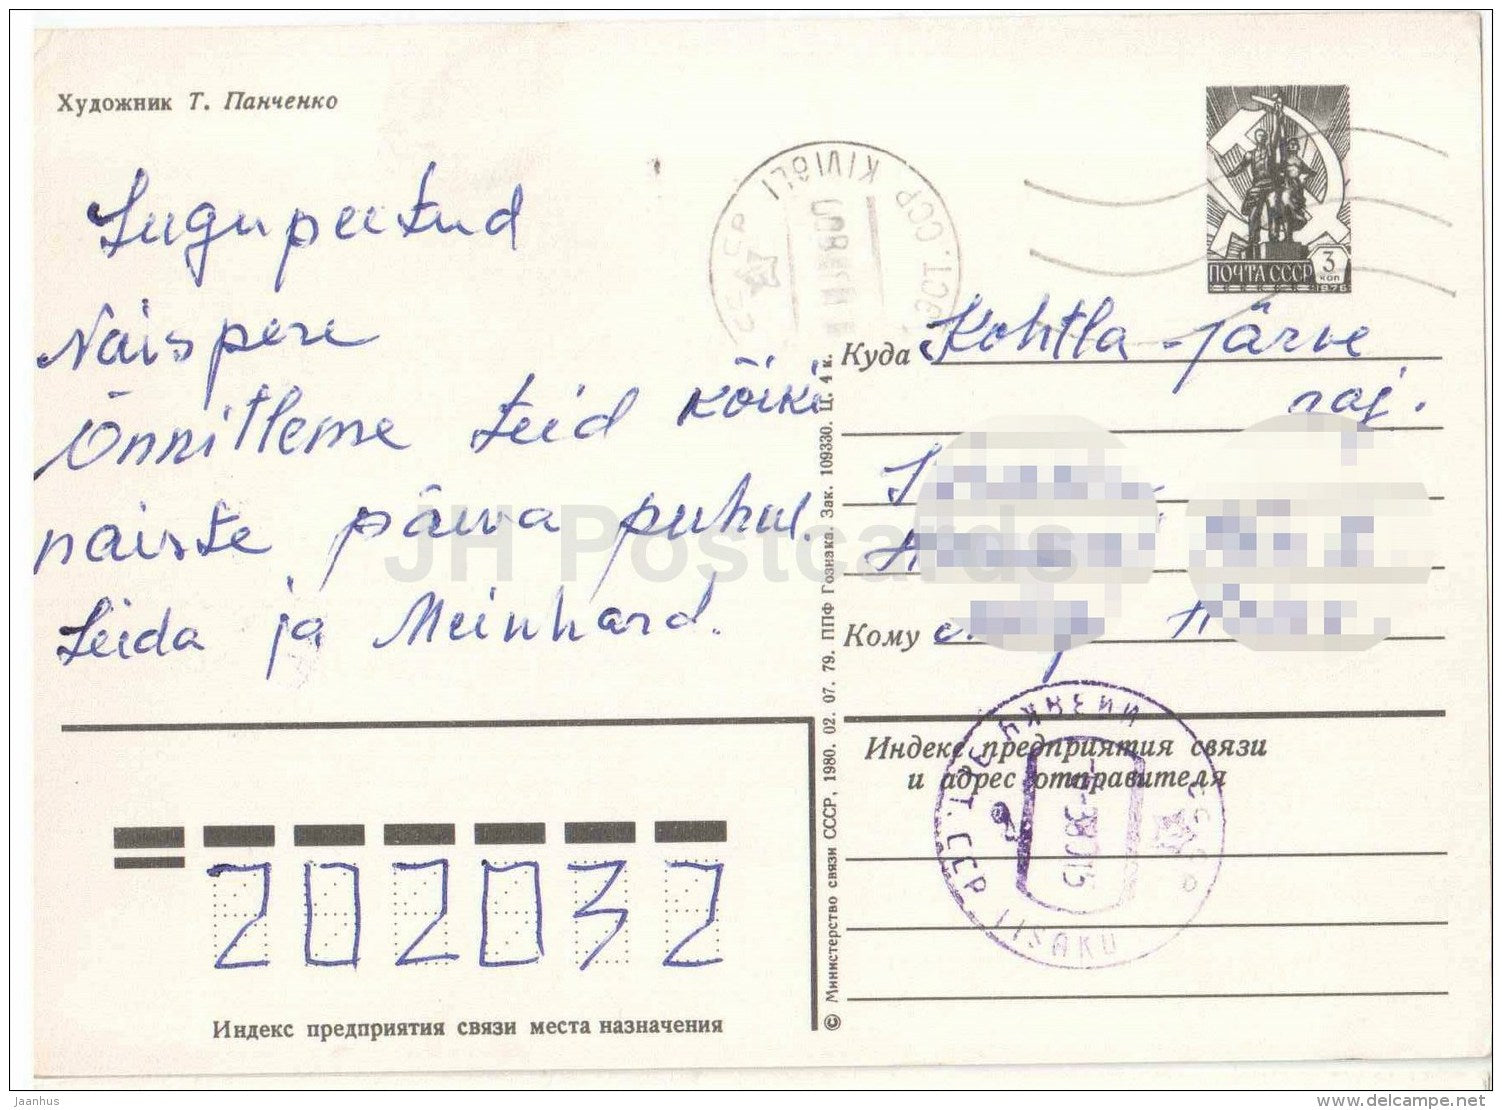 Художник Т. Панченко
Lugupeetud
Naispere
Õnnitleme teid kõiki
naiste päeva puhul.
Leida ja Meinhard.
ПОЧТА СССР 3
коп
1976
СССР KIVIÕLI ЭСТ. ССР
Куда Kohtla-Järve
raj.
Кому
Индекс предприятия связи
и адрес отправителя
СССР IISAKU ЭСТ. ССР
202032
Индекс предприятия связи места назначения
© Министерство связи СССР, 1980. 02. 07. 79. ППФ Гознака. Зак. 109330. Ц. 4 к.
JH Postcards
Jaanhus
delcampe.net